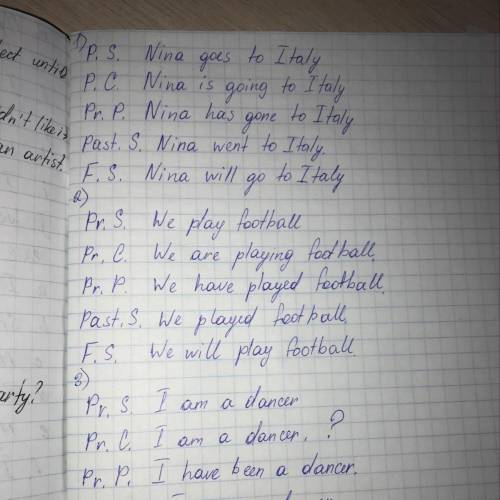 lect untid
dn't like is
an artist.
arty?
1)
P. S. Nina goes to Italy
P. C. Nina is going to Italy
Pr. P. Nina has gone to Italy
Past. S. Nina went to Italy.
F. S. Nina will go to Italy
2)
Pr. S. We play football
Pr. C. We are playing football.
Pr. P. We have played football.
Past. S. We played football.
F. S. We will play football.
3)
Pr. S. I am a dancer
Pr. C. I am a dancer. ?
Pr. P. I have been a dancer.